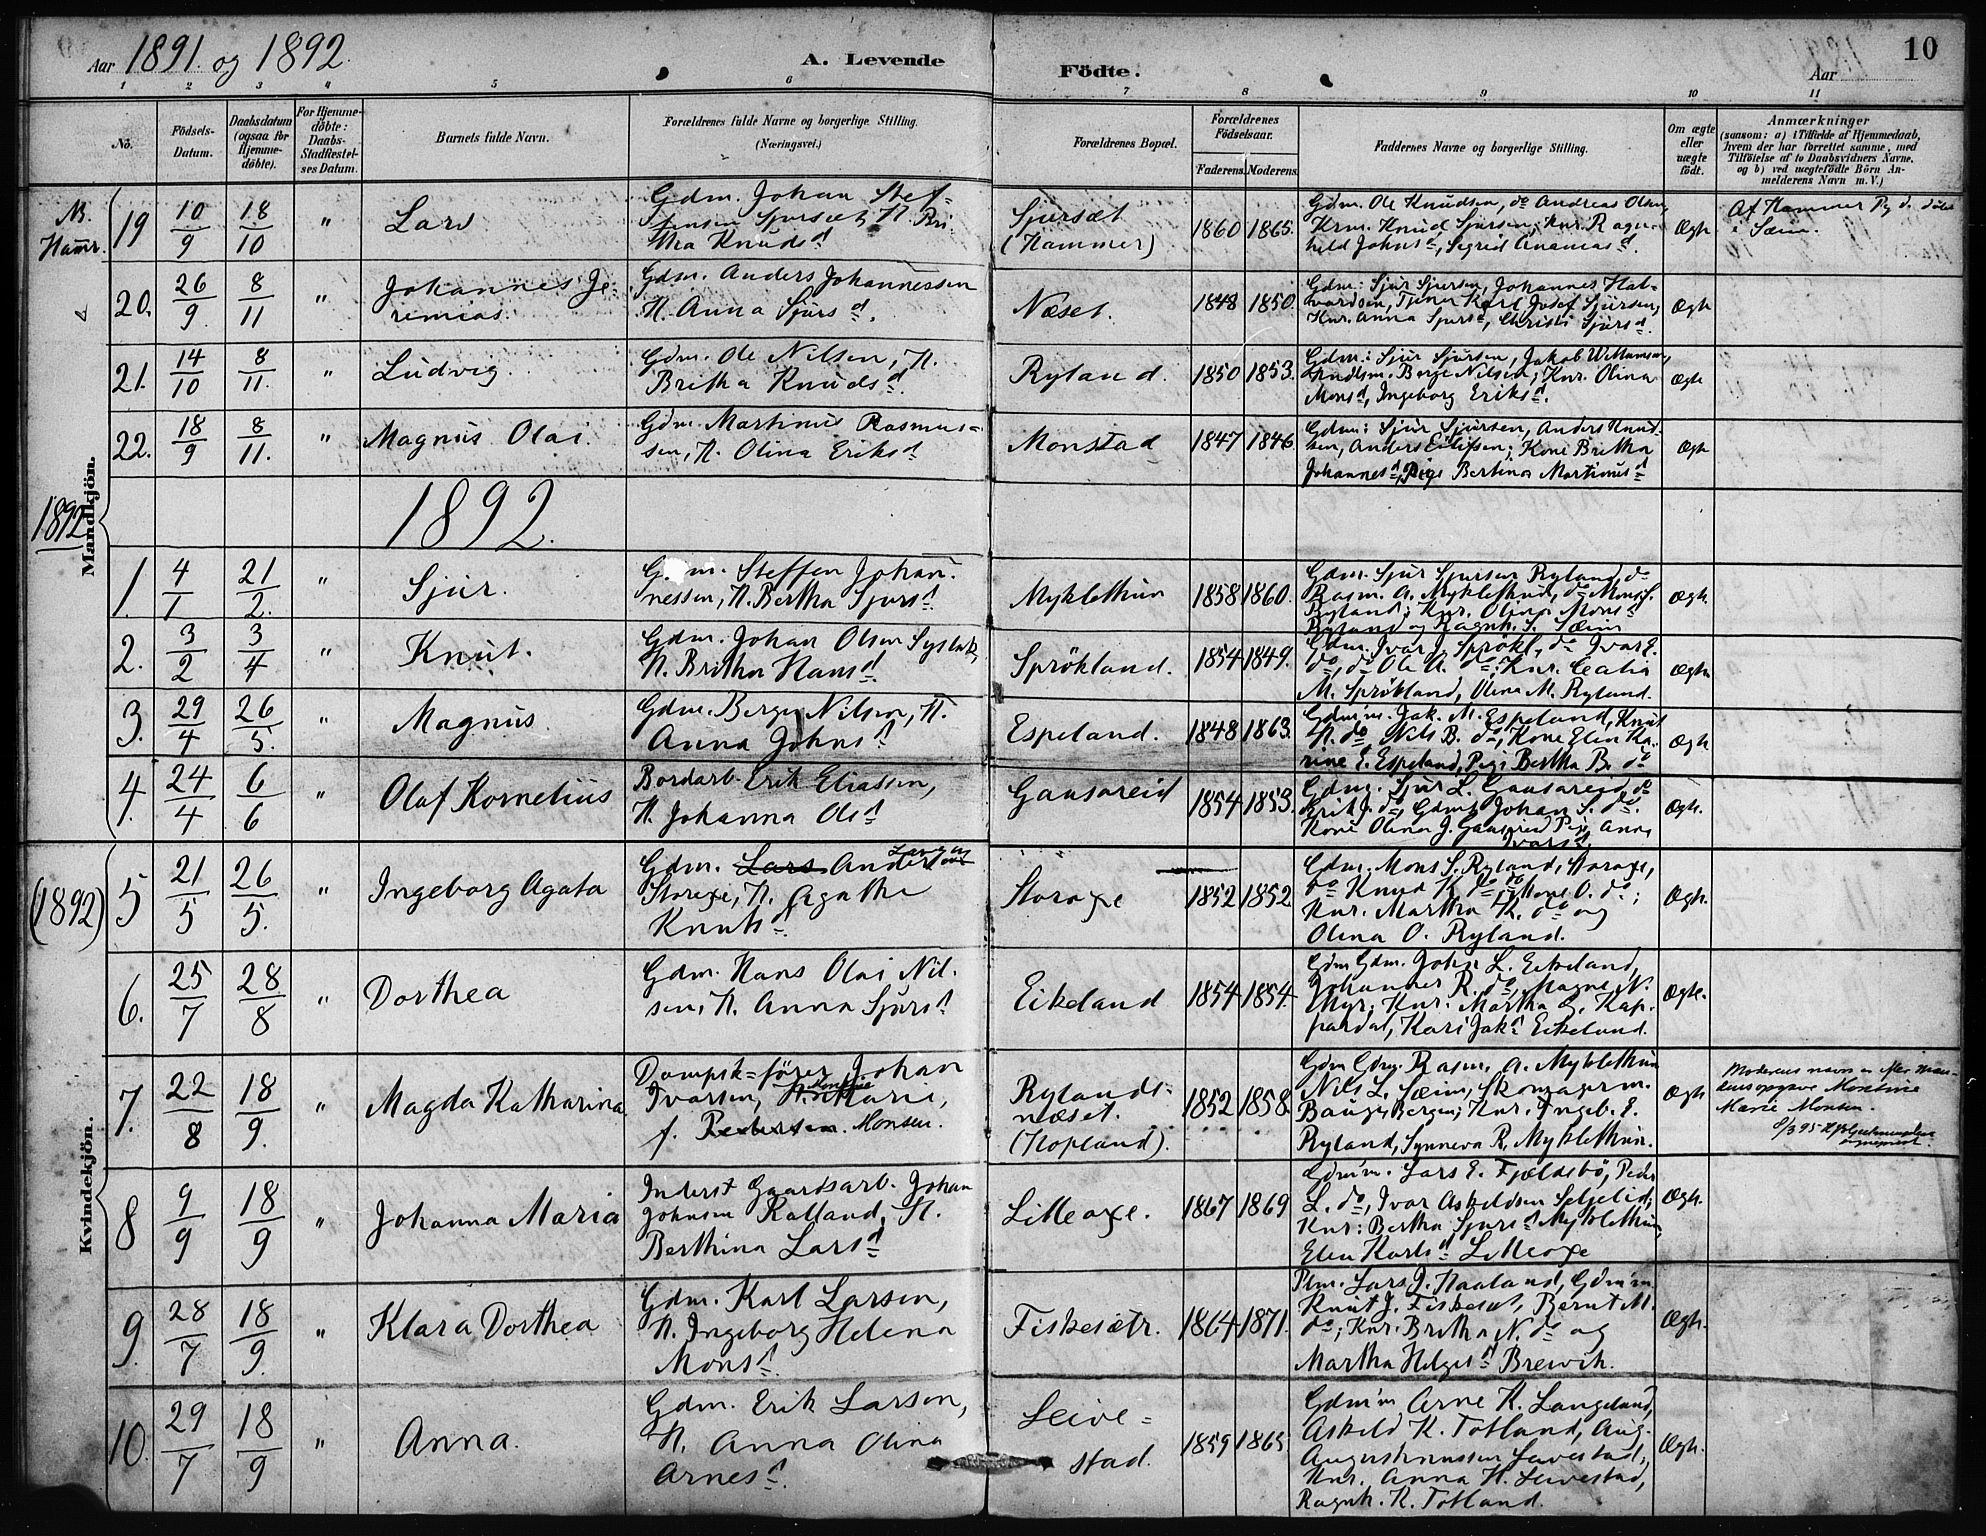 Aar 1891. og 1892.
A. Levende Födte.
Aar
10
1 2 3 4 5 6 7 8 9 10 11
No.
Födsels-Datum.
Daabsdatum (ogsaa for Hjemme-döbte).
For Hjemme-döbte: Daabs-Stadfæstel-ses Datum.
Barnets fulde Navn.
Forældrenes fulde Navne og borgerlige Stilling. (Næringsvei.)
Forældrenes Bopæl.
Forældrenes Födselsaar.
Faderens. Moderens.
Faddernes Navne og borgerlige Stilling.
Om ægte eller uægte födt.
Anmærkninger
(saasom: a) i Tilfælde af Hjemmedaab, hvem der har forrettet samme, med Tilföielse af to Daabsvidners Navne, og b) ved uægtefödte Börn An-melderens Navn m. V.)
Mandkjön.
19 10/9 18/10 " Lars
Gdm. Johan Stef-
fensen Sjursæt, H. Bri-
tha Knudsd
Sjursæt
(Hammer)
1860 1865.
Gdm. Ole Knudsen, do Andreas Olsen,
Krm. Knud Sjursen, Knr. Ragn-
hild Johnsd, Sigrid Ananiasd.
Ægte
i Sæim.
20. 26/9. 8/11 " Johannes Je-
remias.
Gdm. Anders Johannessen
H. Anna Sjursd.
Næset.
1848 1850.
Gdm: Sjur Sjursen, Johannes Hal-
vardsen, Tjener Karl Josef Sjursen,
Knr. Anna Sjursd, Christi Sjursd.
Ægte
21. 14/10 8/11. " Ludvig.
Gdm. Ole Nilsen, H.
Britha Knudsd.
Ryland.
1850 1853.
Gdm: Sjur Sjursen, Jakob Willumsen,
Berge Nilsen; Knr. Olina
Monsd, Ingeborg Eriksd.
Ægte
22. 18/9 8/11. " Magnus Olai.
Gdm. Martinus Rasmus-
sen, H. Olina Eriksd
Monstad
1847 1846
Gdm: Sjur Sjursen, Anders Knud-
sen, Anders Eilifsen; Kone Britha
Johannesd, Pige Bertina Martinusd
Ægte
1892
1892.
1. 4/1 21/2. " Sjur.
Gdm. Steffen Johan-
nessen, H. Bertha Sjursd.
Myklethun
1858 1860.
Gdm. Sjur Sjursen Ryland, do
Rasm. A. Myklethun, do Mons S.
Ryland; Knr. Olina Monsd
Ryland og Ragnh. S. Sæim
Ægte.
2. 3/2 3/4 " Knut.
Gdm. Johan Olsen
H. Britha Hansd.
Sprökland.
1854 1849.
Gdm. Ivar J. Sprökl, do Ivar E.
do, do Ole A. do; Knr. Cecilia
M. Sprökland, Olina M. Ryland.
Ægte
3. 29/4 26/5. " Magnus.
Gdm. Berge Nilsen, H.
Anna Johnsd
Espeland.
1848 1863.
Gdm'm. Jak. M. Espeland, Knut
H. do Nils B. do, Kone Elen Ka-
rine E. Espeland, Pige Bertha B. do
Ægte
4. 24/4 6/6 " Olaf Kornelius
Bordarb. Erik Eliassen,
H. Johanna Olsd
Gausareid
1854 1853.
Gdm. Sjur L. Gausareid, do
Erik J. do, Gdms. Johan S. do.
Kone Olina J. Gausareid Pige Anna
Ivarsd.
Ægte.
(1892)
Kvindekjön.
5 21/5 26/5. " Ingeborg Agata
Gdm. Lars Anders Larsen
Storoxe, H. Agathe
Knutsd
Storoxe
1852 1852
Gdm. Mons S. Ryland, Storoxe,
do Knud K. do, Mons O. do;
Knr. Martha K. do og
Olina O. Ryland.
Ægte.
6. 25/7 28/8 " Dorthea
Gdm. Hans Olai Nil-
sen, H. Anna Sjursd
Eikeland
1854 1854
Gdm Gdm. John L. Eikeland,
Johannes R. do, Magne N.
Knr. Martha Kap-
pardal, Kari Jaksd Eikeland.
Ægte.
7. 22/8 18/9. " Magda Katharina
Dampsk=förer Johan
Ivarsen, H. Marie,
f. Pedersen. Monsen.
Rylands-
næset.
(Hopland).
1852 1858.
Gdm Gdm. Rasm. A. Myklethun
Nils L. Sæim, Skomagerm.
Bauge, Bergen; Knr. Ingeb. E.
Ryland, Synneva R. Myklethun.
Ægte
Moderens navn er efter
opgave Montine
Marie Monsen.
8 9/9 18/9 " Johanna Maria
Inderst Gaardsarb. Johan
Johnsen Ratland, H.
Berthina Larsd
Lilleoxe.
1867 1869
Gdm'm. Lars E. Fjeldsbö, Peder
L. do, Ivar Askildsen Seljelid,
Knr: Bertha Sjursd Myklethun,
Elen Karlsd Lilleoxe
Ægte.
9. 28/7 18/9. " Klara Dorthea
Gdm. Karl Larsen,
H. Ingeborg Helena
Monsd.
Fiskesætr.
1864 1871.
Plm. Lars J. Haaland, Gdm'm
Knut J. Fiskesæt, Bernt M.
do; Knr. Britha N. do og
Martha Helgesd Breivik.
Ægte.
10. 29/7 18/9 " Anna.
Gdm. Erik Larsen,
H. Anna Olina
Arnesd.
Leive=
stad.
1859 1865
Gdm'm Arne K. Langeland,
Askild K. Totland, Aug.
Leivestad,
Knr. Anna H. Leivestad,
Ragnh. K. Totland.
Ægte.